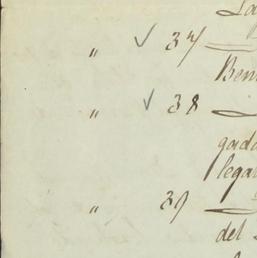 " ✓ 37
Ben
" ✓ 38
gada
lega
" 39
del